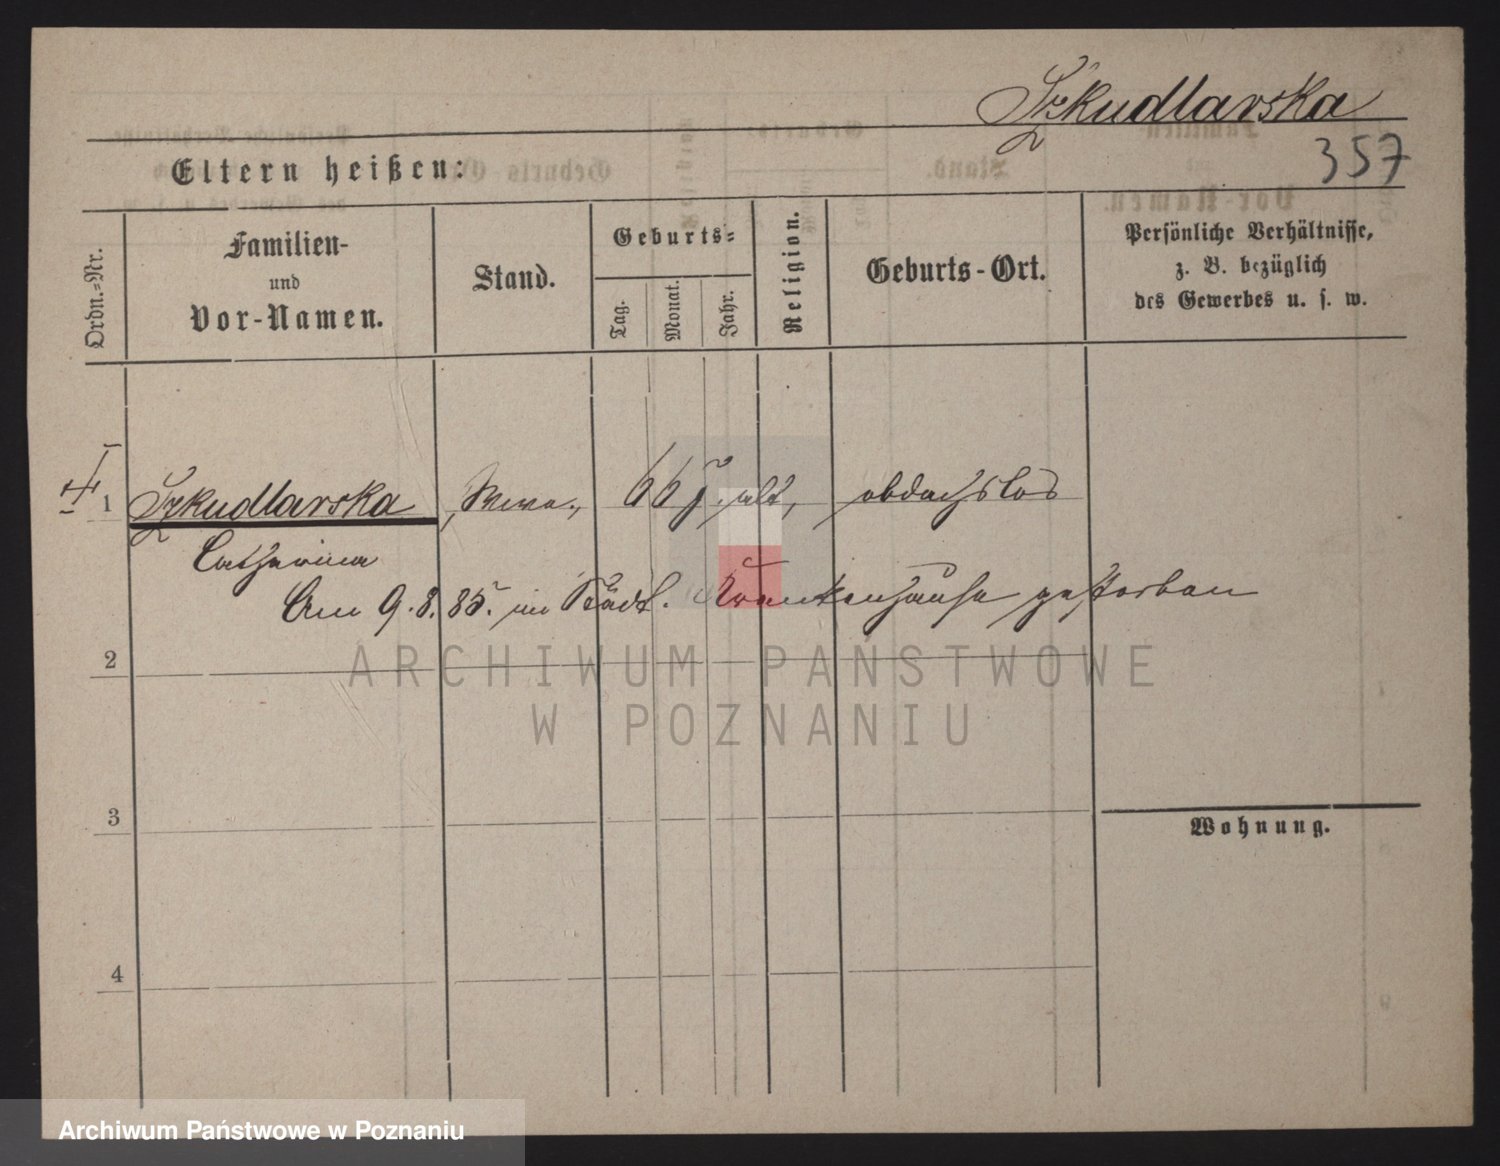 Szkudlarska
357
Eltern heißen:
Ordn.-Nr.
Familien-
und
Vor-Namen.
Stand.
Geburts-
Tag.
Monat.
Jahr.
Religion.
Geburts-Ort.
Persönliche Verhältnisse,
z. B. bezüglich
des Gewerbes u. s. w.
1 Szkudlarska, Wwe., 66 J. alt, obdachslos
Catharina
Am 9.8.85. im Städt. Krankenhause gestorben
2
ARCHIWUM PAŃSTWOWE
W POZNANIU
3
Wohnung.
4
Archiwum Państwowe w Poznaniu